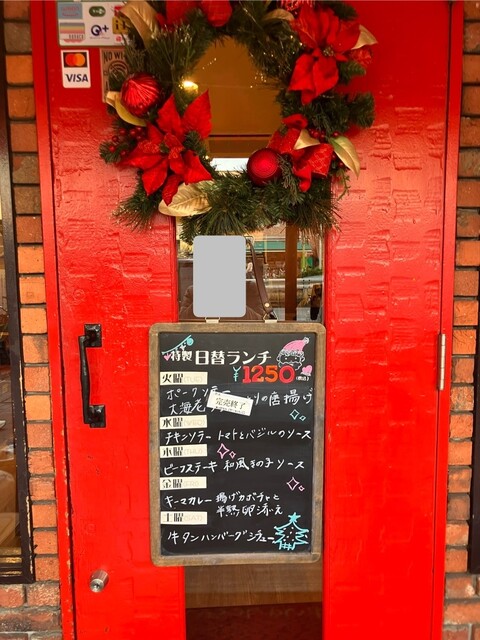 Q+
NO
VISA
特製 日替ランチ
¥1250(税込)
火曜
ポーク
の唐揚げ
大海老
完売終了
水曜
チキンソテー トマトとバジルのソース
木曜
ビーフステーキ 和風きの子ソース
金曜
キーマカレー 揚げカボチャと
半熟卵添え
土曜
牛タンハンバーグシチュー